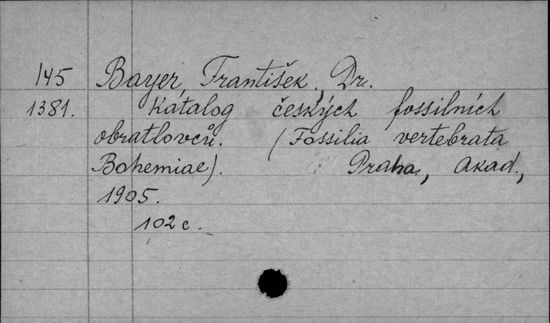 145 Bayer, František, Dr.
1381. Katalog českých fossilních
obratlovců. (Fossilia vertebrata
Bohemiae). Praha, Akad.,
1905.
102 c.